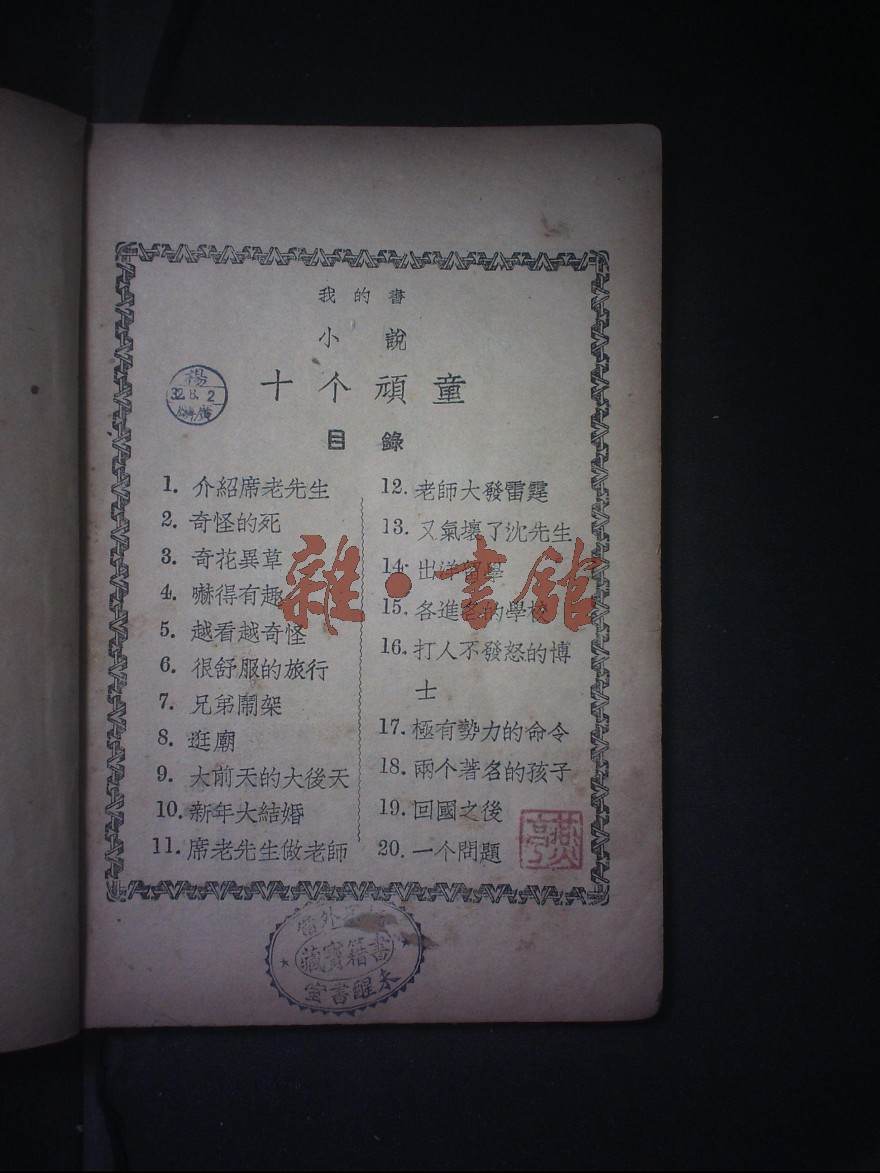 我的書
小說
十个頑童
楊
32.8.2
目錄
1. 介紹席老先生
2. 奇怪的死
3. 奇花異草
4. 嚇得有趣
5. 越看越奇怪
6. 很舒服的旅行
7. 兄弟鬧架
8. 逛廟
9. 大前天的大後天
10. 新年大結婚
11. 席老先生做老師
12. 老師大發雷霆
13. 又氣壞了沈先生
14. 出洋留學
15. 各進各的學校
16. 打人不發怒的博
士
17. 極有勢力的命令
18. 兩个著名的孩子
19. 回國之後
20. 一个問題
雜·書館
書籍寶藏
未醒書室